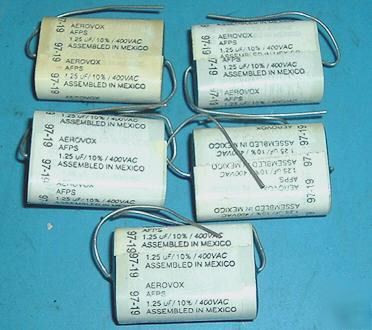 AEROVOX
AFPS
1.25 uF/10%/400VAC
ASSEMBLED IN MEXICO
97-19
AEROVOX
AFPS
1.25 uF/10%/400VAC
ASSEMBLED IN MEXICO
1.25 uF/10%/400VAC
ASSEMBLED IN MEXICO
AEROVOX
AFPS
1.25 uF/10%/400VAC
ASSEMBLED IN MEXICO
97-19
AEROVOX
AFPS
1.25 uF/10%/400VAC
ASSEMBLED IN MEXICO
97-19
AEROVOX
AFPS
ASSEMBLED IN MEXICO
1.25 uF/10%/400VAC
AFPS
AEROVOX
97-19
AFPS
1.25 uF/10%/400VAC
ASSEMBLED IN MEXICO
97-19
AEROVOX
AFPS
1.25 uF/10%/400VAC
ASSEMBLED IN MEXICO
97-19